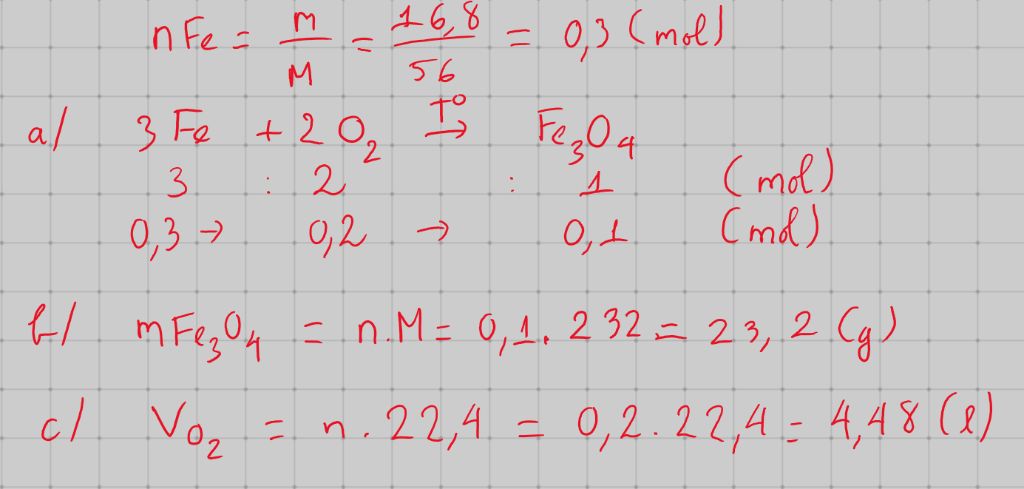 nFe = m/M = 16,8/56 = 0,3 (mol)
a/ 3 Fe + 2 O₂ T°→ Fe₃O₄
3 : 2 : 1 (mol)
0,3 → 0,2 → 0,1 (mol)
b/ mFe₃O₄ = n.M = 0,1. 232 = 23,2 (g)
c/ V O₂ = n . 22,4 = 0,2. 22,4 = 4,48 (l)